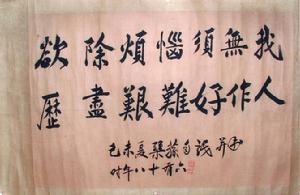 欲除煩惱須無我
歷盡艱難好作人
己未夏自識并
时年八十有六